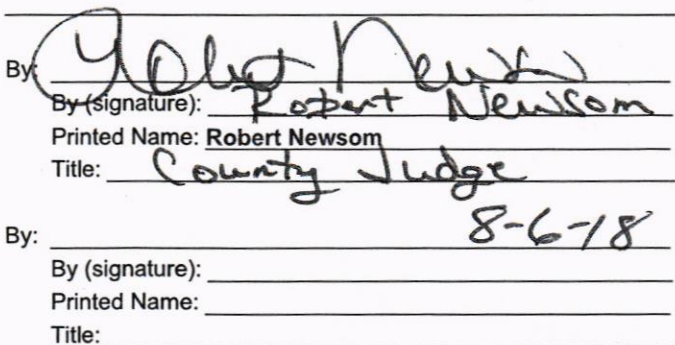 By: Robert Newsom
By (signature): Robert Newsom
Printed Name: Robert Newsom
Title: County Judge
By: 8-6-18
By (signature):
Printed Name:
Title: